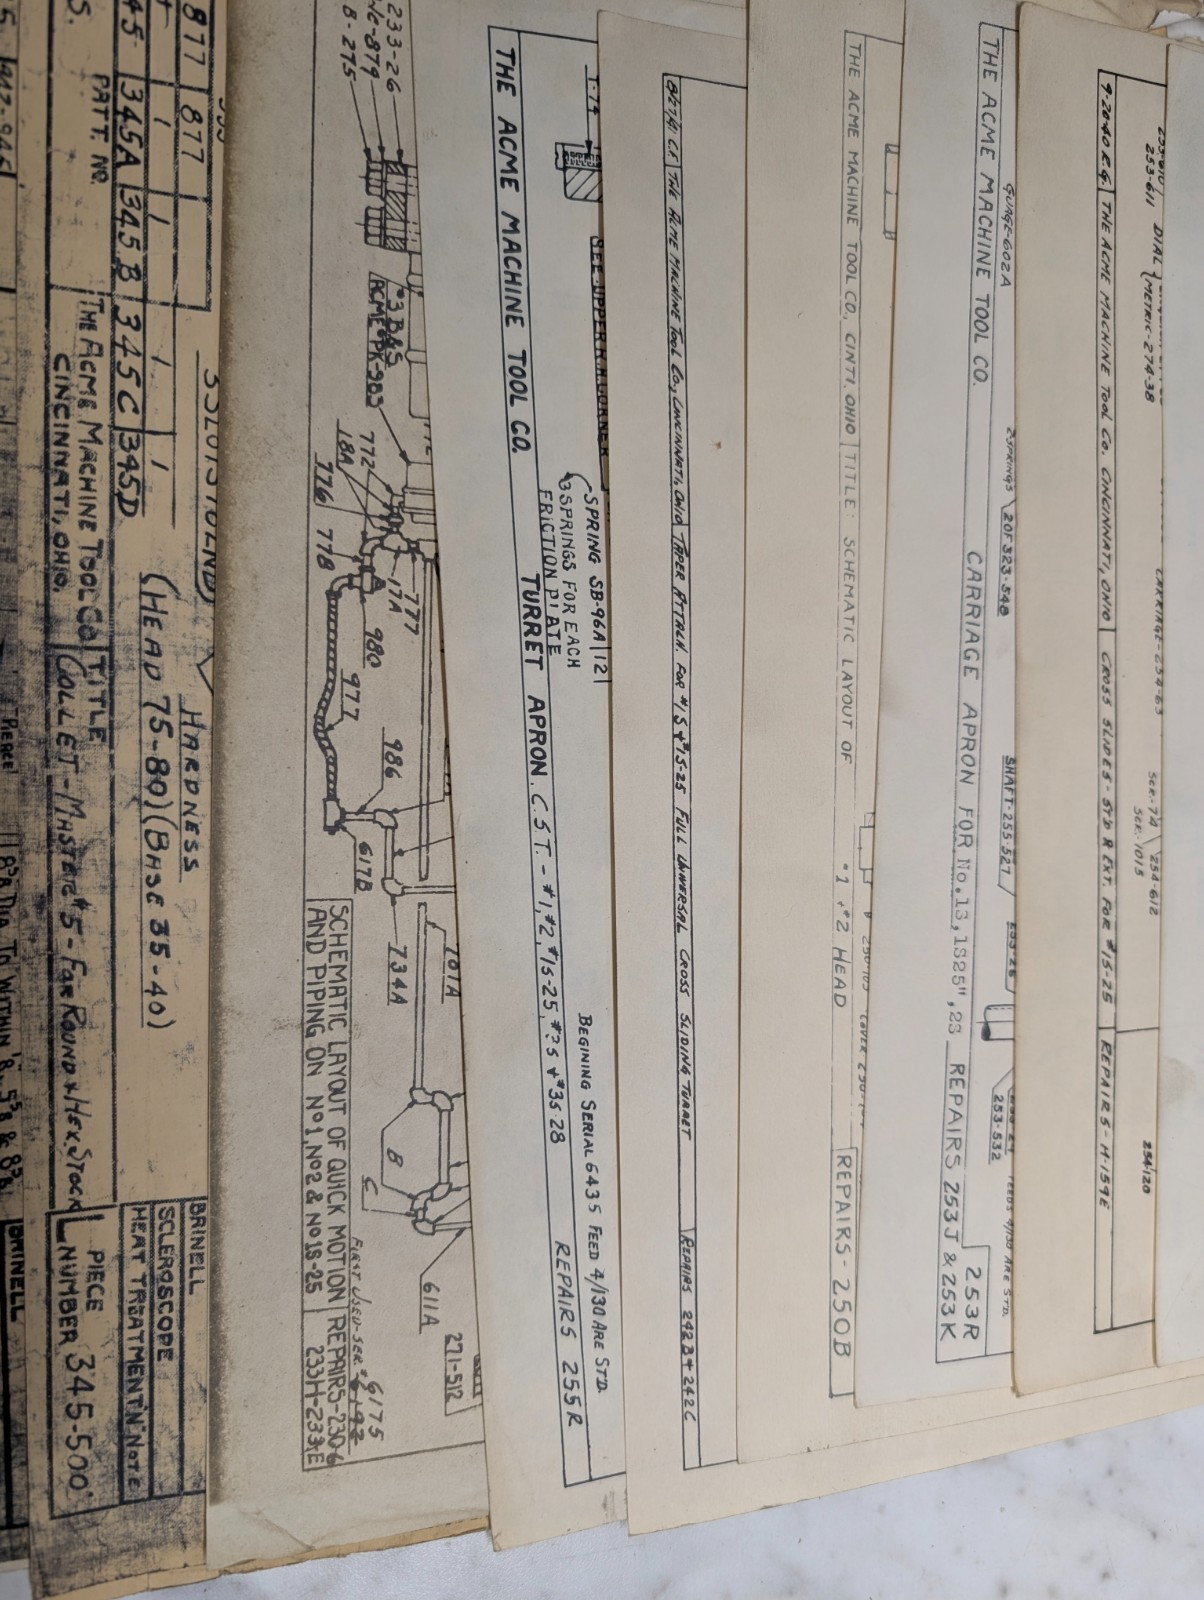 253-611
DIAL
METRIC-274-38
SCR.-74
SCR.-1015
254-612
254-120
9-20-40 R.G. THE ACME MACHINE TOOL CO. CINCINNATI, OHIO CROSS SLIDES - STD & EXT. FOR #1S-25 REPAIRS-H-159E
GUAGE-602A
2 SPRINGS 20F323-548
SHAFT-255-527
253-532
THE ACME MACHINE TOOL CO. CARRIAGE APRON FOR No.13,1S25",23 REPAIRS 253J & 253K
253R
THE ACME MACHINE TOOL CO., CINTI. OHIO TITLE: SCHEMATIC LAYOUT OF #1 & #2 HEAD REPAIRS-250B
THE ACME MACHINE TOOL CO., CINCINNATI, OHIO TAPER ATTACH. FOR #1S & #1S-25 FULL UNIVERSAL CROSS SLIDING TURRET REPAIRS 242B & 242C
SEE UPPER R.H. CORNER
SPRING SB-96A 12
3 SPRINGS FOR EACH
FRICTION PLATE
BEGINING SERIAL 6435 FEED 4/130 ARE STD.
THE ACME MACHINE TOOL CO. TURRET APRON. C.S.T. - #1, #2, #1S-25, #3S & #3S 28 REPAIRS 255R
233-26
B-275
#3 B&S
ACME PK-983
772
18A
776
778
777
17A
980
977
986
617B
734A
701A
B
C
611A
271-512
FIRST USED-SER. #6175
SCHEMATIC LAYOUT OF QUICK MOTION
AND PIPING ON No1, No2 & No1S-25
REPAIRS-230-6
233H-233E
877 877
345A 345B 345C 345D
3 SLOTS
HARDNESS
(HEAD 75-80) (BASE 35-40)
BRINELL
SCLEROSCOPE
HEAT TREATMENT "N" NOTE
PATT. NO.
THE ACME MACHINE TOOL CO.
CINCINNATI, OHIO.
TITLE
COLLET-MASTER #5-FOR ROUND & HEX. STOCK
PIECE
NUMBER 345-500
PIERCE
BRINELL